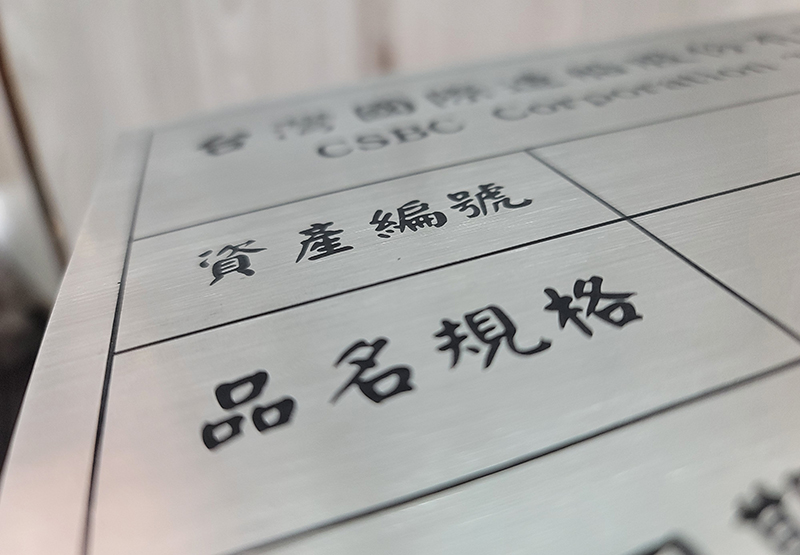 台灣國際造船股份有
CSBC Corporation
資產編號
品名規格
期